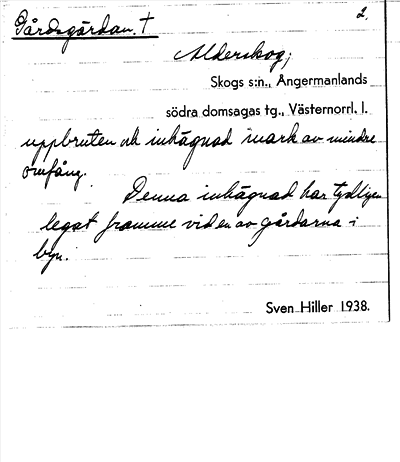 Gårdsgärdan. † 2.
Alderskog;
Skogs s:n., Ångermanlands
södra domsagas tg., Västernorrl. l.
uppbruten och inhägnad mark av mindre
omfång.
Denna inhägnad har tydligen
legat framme vid en av gårdarna i
byn.
Sven Hiller 1938.